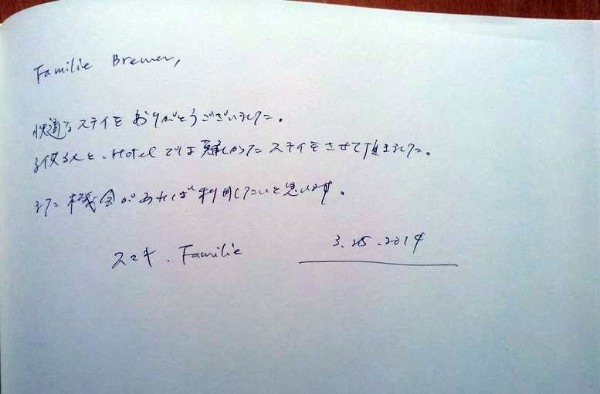 Familie Bremer,
快適なステイをありがとうございました。
子供3人と、Hotelでは難しかった ステイをさせて頂きました。
また機会があれば利用したいと思います。
スズキ. Familie
3.25.2014